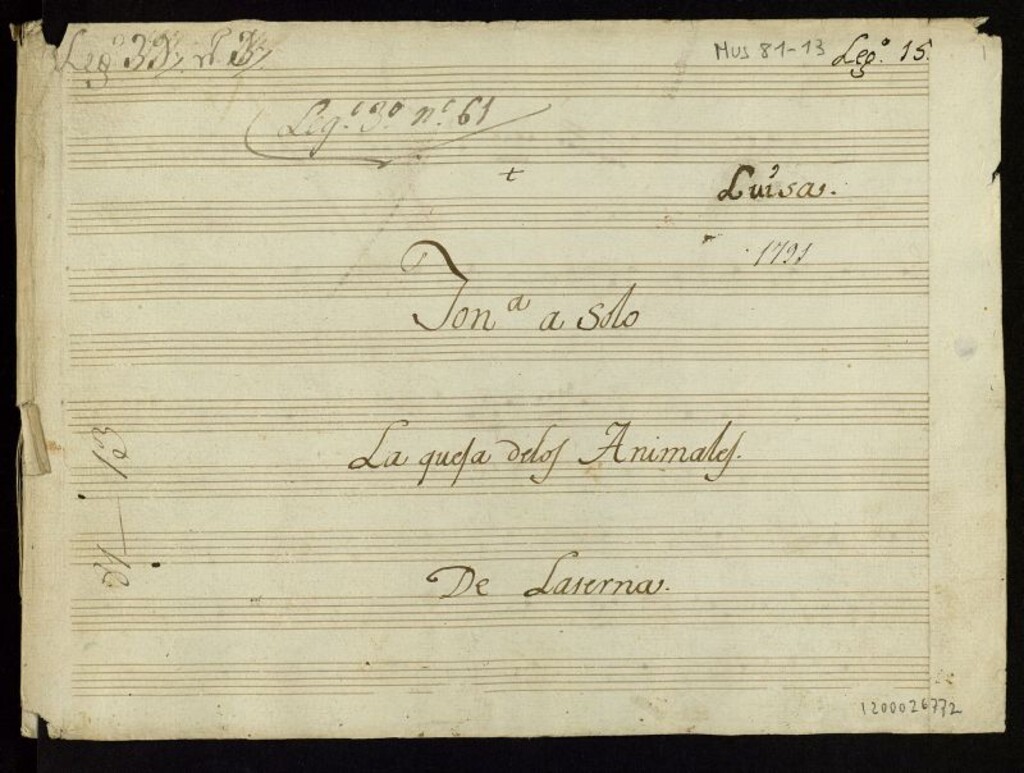 Leg.º 3
Mus 81-13
Leg.º 15.
Leg.º 3º n.º 61
+
Luisa.
1791
Ton.ª a Solo
La quesa delos Animales.
De Laserna.
1200026772